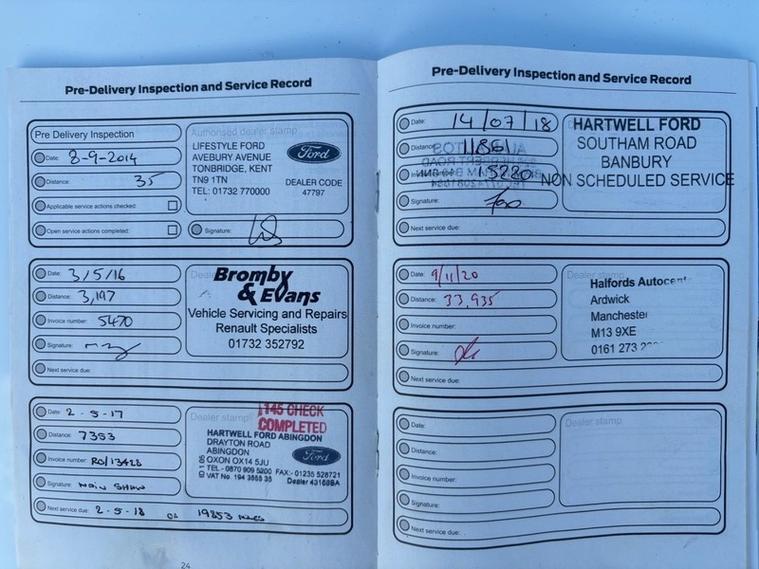 Pre-Delivery Inspection and Service Record
Pre Delivery Inspection
Date: 8-9-2014
Distance: 35
Applicable service actions checked:
Open service actions completed:
Authorised dealer stamp
LIFESTYLE FORD
AVEBURY AVENUE
TONBRIDGE, KENT
TN9 1TN
TEL: 01732 770000
Ford
DEALER CODE
47797
Signature:
Date: 3/5/16
Distance: 3,197
Invoice number: 5470
Signature:
Next service due:
Bromby
& Evans
Vehicle Servicing and Repairs
Renault Specialists
01732 352792
Date: 2-5-17
Distance: 7353
Invoice number:
Signature:
Next service due: 2-5-18 OR 19853 MILES
Dealer stamp
145 CHECK
COMPLETED
HARTWELL FORD ABINGDON
DRAYTON ROAD
ABINGDON
OXON OX14 5JU
TEL - 0870 909 5200 FAX:- 01235 528721
VAT No
Dealer
Ford
24
Pre-Delivery Inspection and Service Record
Date: 14/07/18
Distance: 11861
15220
Signature:
Next service due:
HARTWELL FORD
SOUTHAM ROAD
BANBURY
NON SCHEDULED SERVICE
Date: 9/11/20
Distance: 33,935
Invoice number:
Signature:
Next service due:
Dealer stamp
Halfords Autocent
Ardwick
Manchester
M13 9XE
0161 273
Date:
Distance:
Invoice number:
Signature:
Next service due:
Dealer stamp